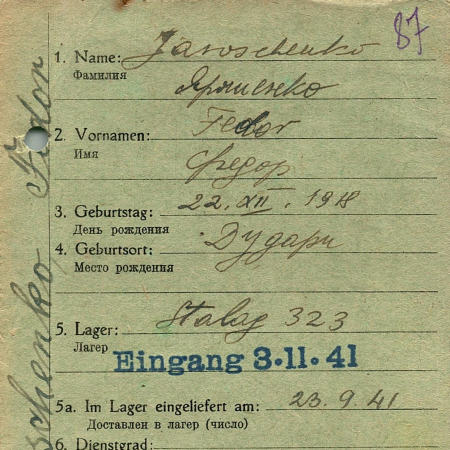 87
1. Name: Jaroschenko
Фамилия
Ярошенко
2. Vornamen: Fedor
Имя
Федор
3. Geburtstag: 22. XII. 1918
День рождения
4. Geburtsort: Дудари
Место рождения
5. Lager: Stalag 323
Лагер
Eingang 3.11.41
5a. Im Lager eingeliefert am: 23.9.41
Доставлен в лагер (число)
6. Dienstgrad:
schenko Fedor